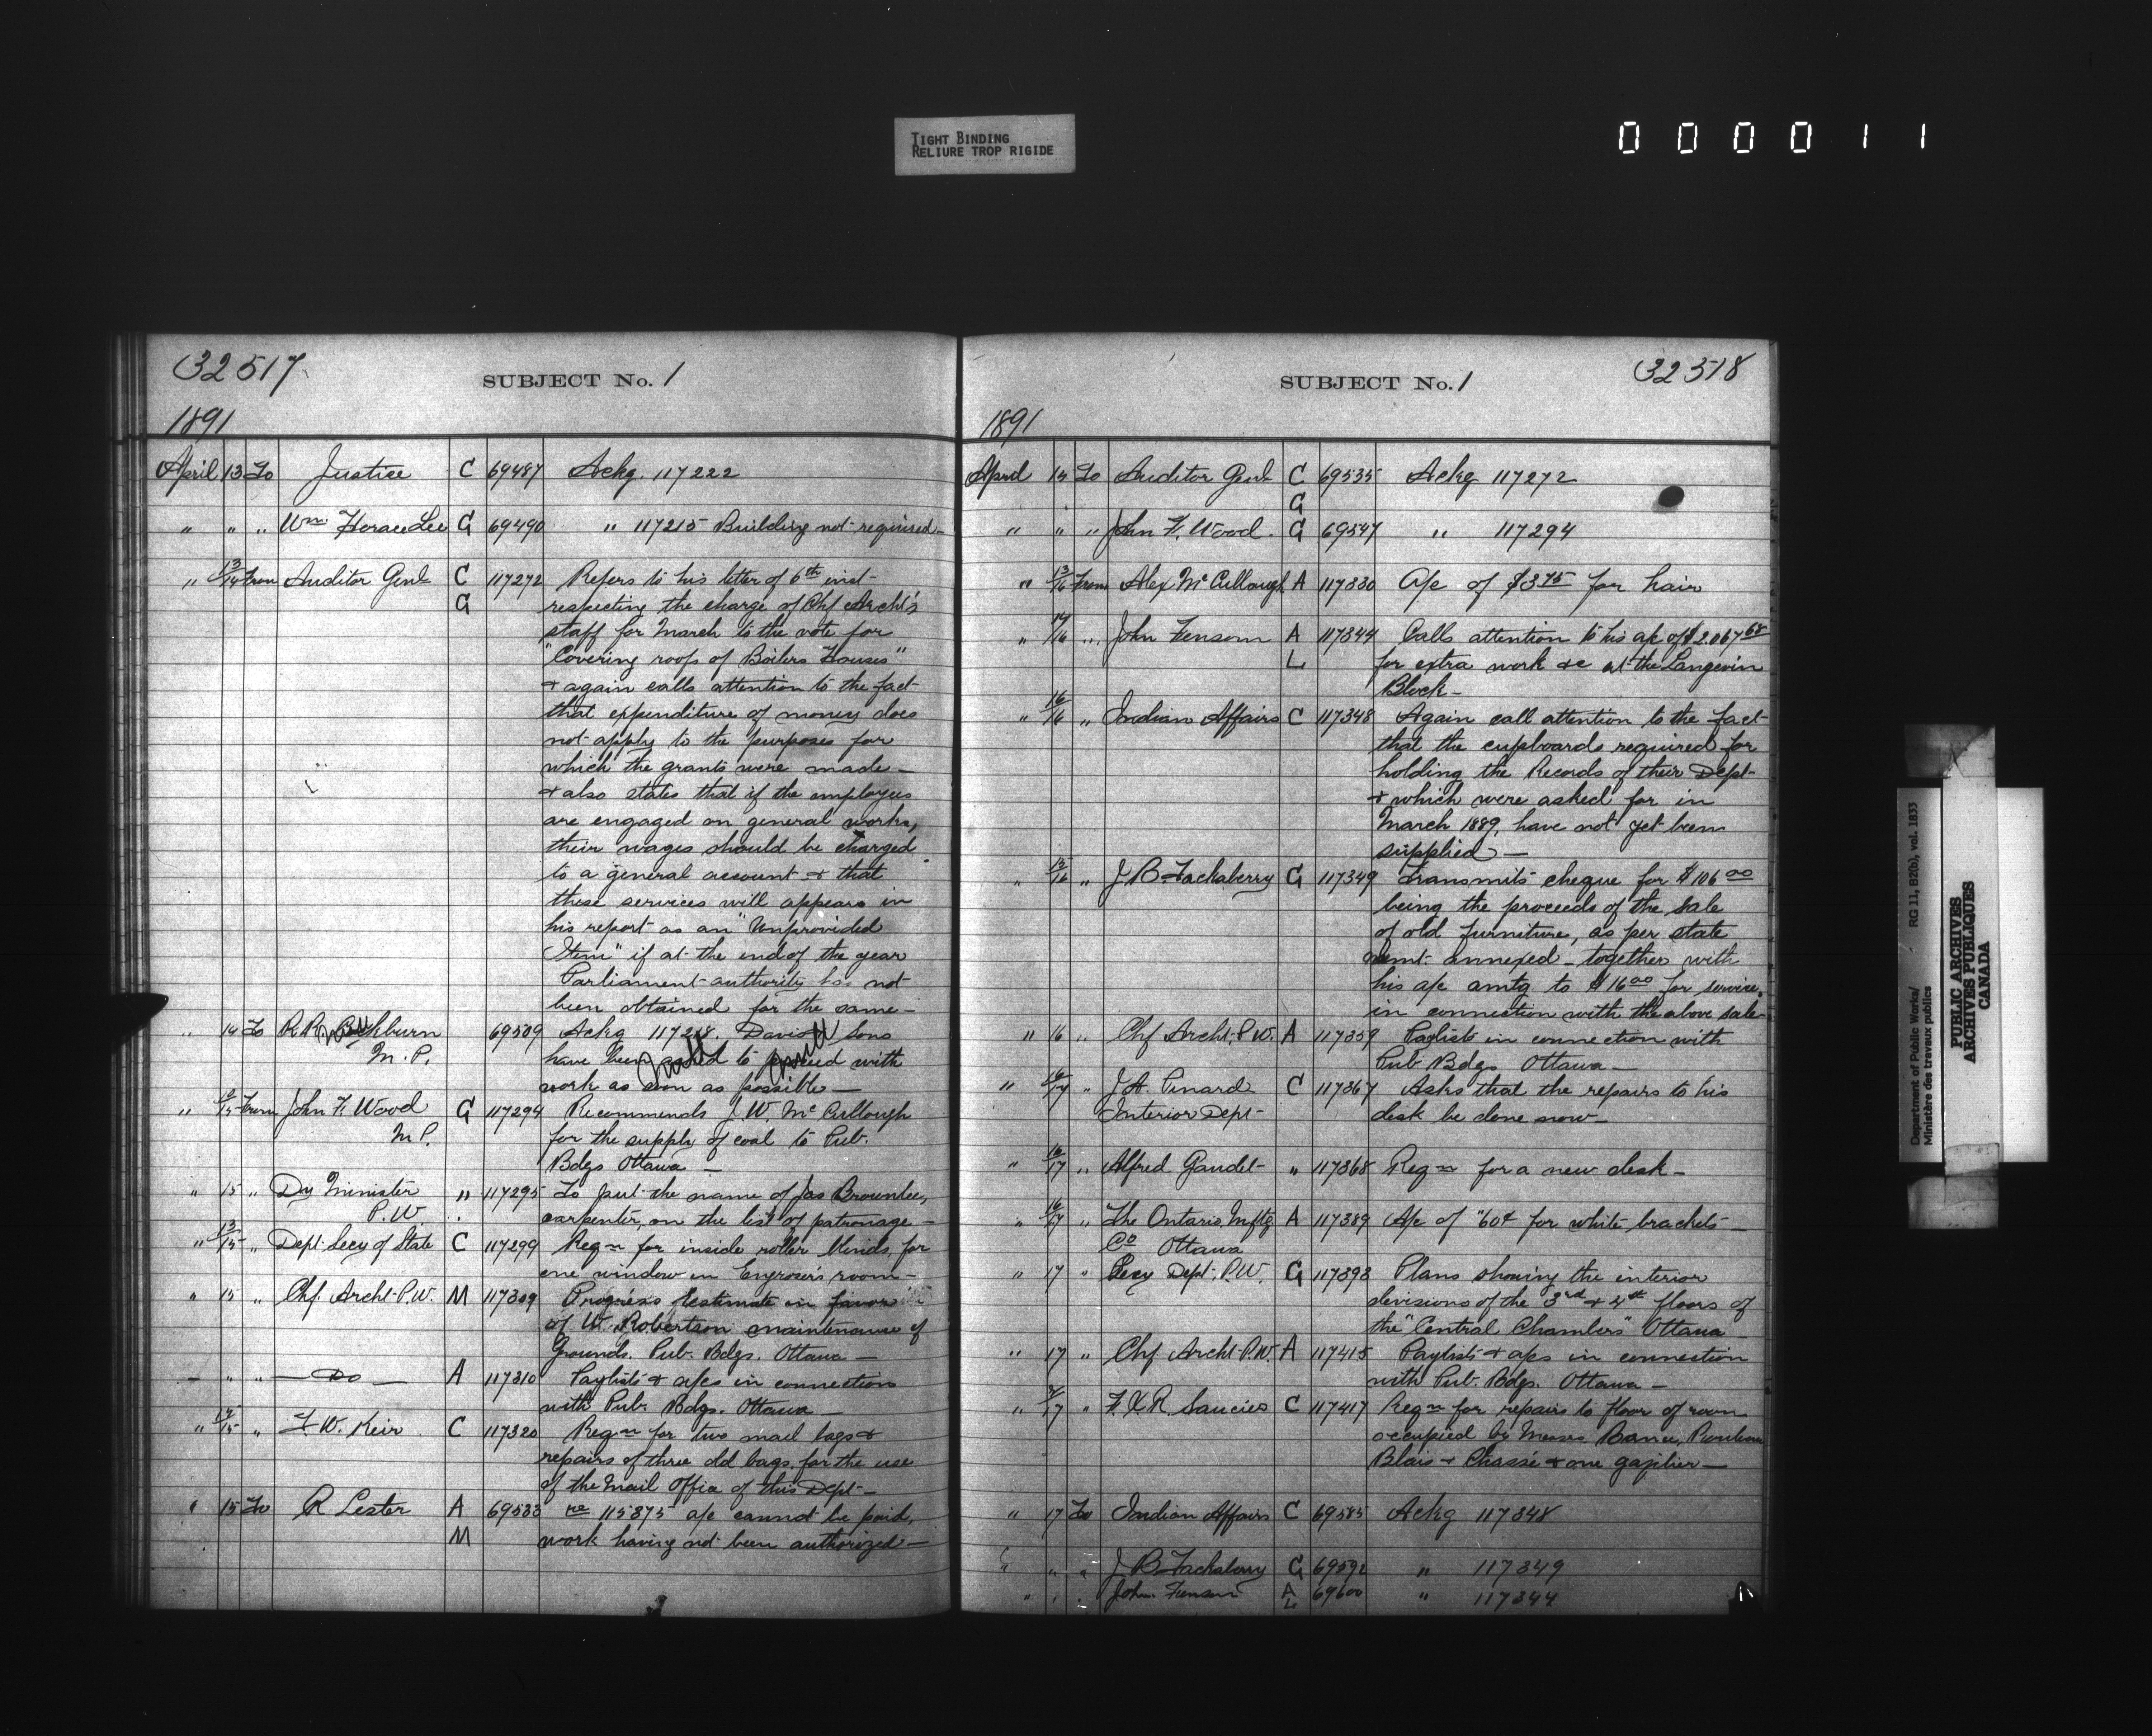 TIGHT BINDING
RELIURE TROP RIGIDE
000011
32517
SUBJECT No. 1
1891
April 13 To Justice C 69487 Ackg. 117222
" " " Wm Horace Lee G 69490 " 117215 Building not required
" 13/14 From Auditor Genl C 117272 Refers to his letter of 6th inst
G respecting the charge of Chf Archt's
staff for March to the vote for
"Covering roofs of Boilers Houses"
& again calls attention to the fact
that expenditure of money does
not apply to the purposes for
which the grants were made —
& also states that if the employees
are engaged on general works,
their wages should be charged
to a general account & that
these services will appear in
his report as an "Unprovided
Item" if at the end of the year
Parliament authority has not
been obtained for the same —
" 14 To M.P. 69509 Ackg 117218. Sons
have been to with
work as soon as possible —
" 15 From John F. Wood M.P. G 117294 Recommends J.W. McCullough
for the supply of coal to Pub.
Bdgs Ottawa —
" 15 " Dy Minister P.W. " 117295 To put the name of Jas Brownlee,
carpenter, on the list of patronage —
" 13/15 " Dept. Secy of State C 117299 Reqn for inside roller blinds for
one window in Engrosser's room —
" 15 " Chf. Archt. P.W. M 117309 Progress Estimate in favor
of W. Robertson maintenance of
Grounds. Pub. Bdgs. Ottawa —
" " " — Do — A 117310 Paylists & a/cs in connection
with Pub. Bdgs. Ottawa —
" 14/15 " F.W. Keir C 117320 Reqn for two mail bags &
repairs of three old bags, for the use
of the Mail Office of this Dept —
" 15 To R Lester A 69533 re 115875 a/c cannot be paid,
M work having not been authorized —
SUBJECT No. 1
32518
1891
April 15 To Auditor Genl C 69535 Ackg 117272
G
" " " John F. Wood. G 69547 " 117294
" 13/16 From Alex McCullough A 117330 A/c of $3.75 for hair
" 14/16 " John Fensom A 117344 Calls attention to his a/c of $2.067 68
L for extra work &c at the Langevin
Block —
" 16/16 " Indian Affairs C 117348 Again call attention to the fact
that the cupboards required for
holding the Records of their Dept
& which were asked for in
March 1889, have not yet been
supplied —
" 13/16 " J B Tackaberry G 117349 Transmits cheque for $106 00
being the proceeds of the sale
of old furniture, as per state
ment annexed — together with
his a/c amtg to $16 00 for service
in connection with the above sale
" 16 " Chf Archt. P.W. A 117359 Paylists in connection with
Pub Bdgs Ottawa —
" 16/17 " J.A. Pinard C 117367 Asks that the repairs to his
Interior Dept desk be done now —
" 16/17 " Alfred Gaudet " 117368 Reqn for a new desk —
" 16/17 " The Ontario Mnftg A 117389 A/c of "60¢ for white brackets —
Co Ottawa
" 17 " Secy Dept. P.W. G 117393 Plans showing the interior
divisions of the 3rd & 4th floors of
the "Central Chambers" Ottawa —
" 17 " Chf Archt P.W. A 117415 Paylists & a/cs in connection
with Pub. Bdgs. Ottawa —
" " F.X.R. Saucier C 117417 Reqn for repairs to floor of room
occupied by Messrs
Blais & Chassé & one gazilier —
" 17 To Indian Affairs C 69585 Ackg 117348
" " " J B Tackaberry G 69592 " 117349
" " " John Fensom A 69600 " 117344
L
Department of Public Works/ RG 11, B2(b), vol. 1833
Ministère des travaux publics
PUBLIC ARCHIVES
ARCHIVES PUBLIQUES
CANADA